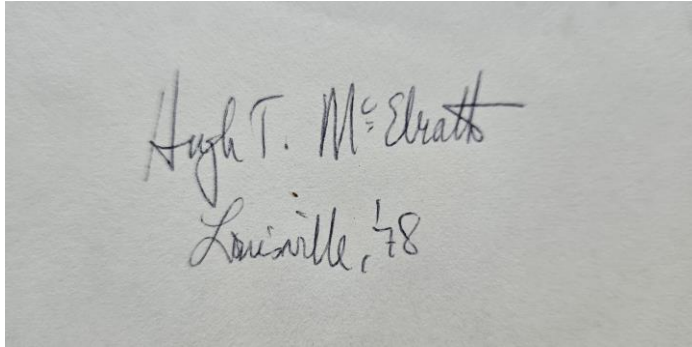 Hugh T. McElrath
Louisville, '78